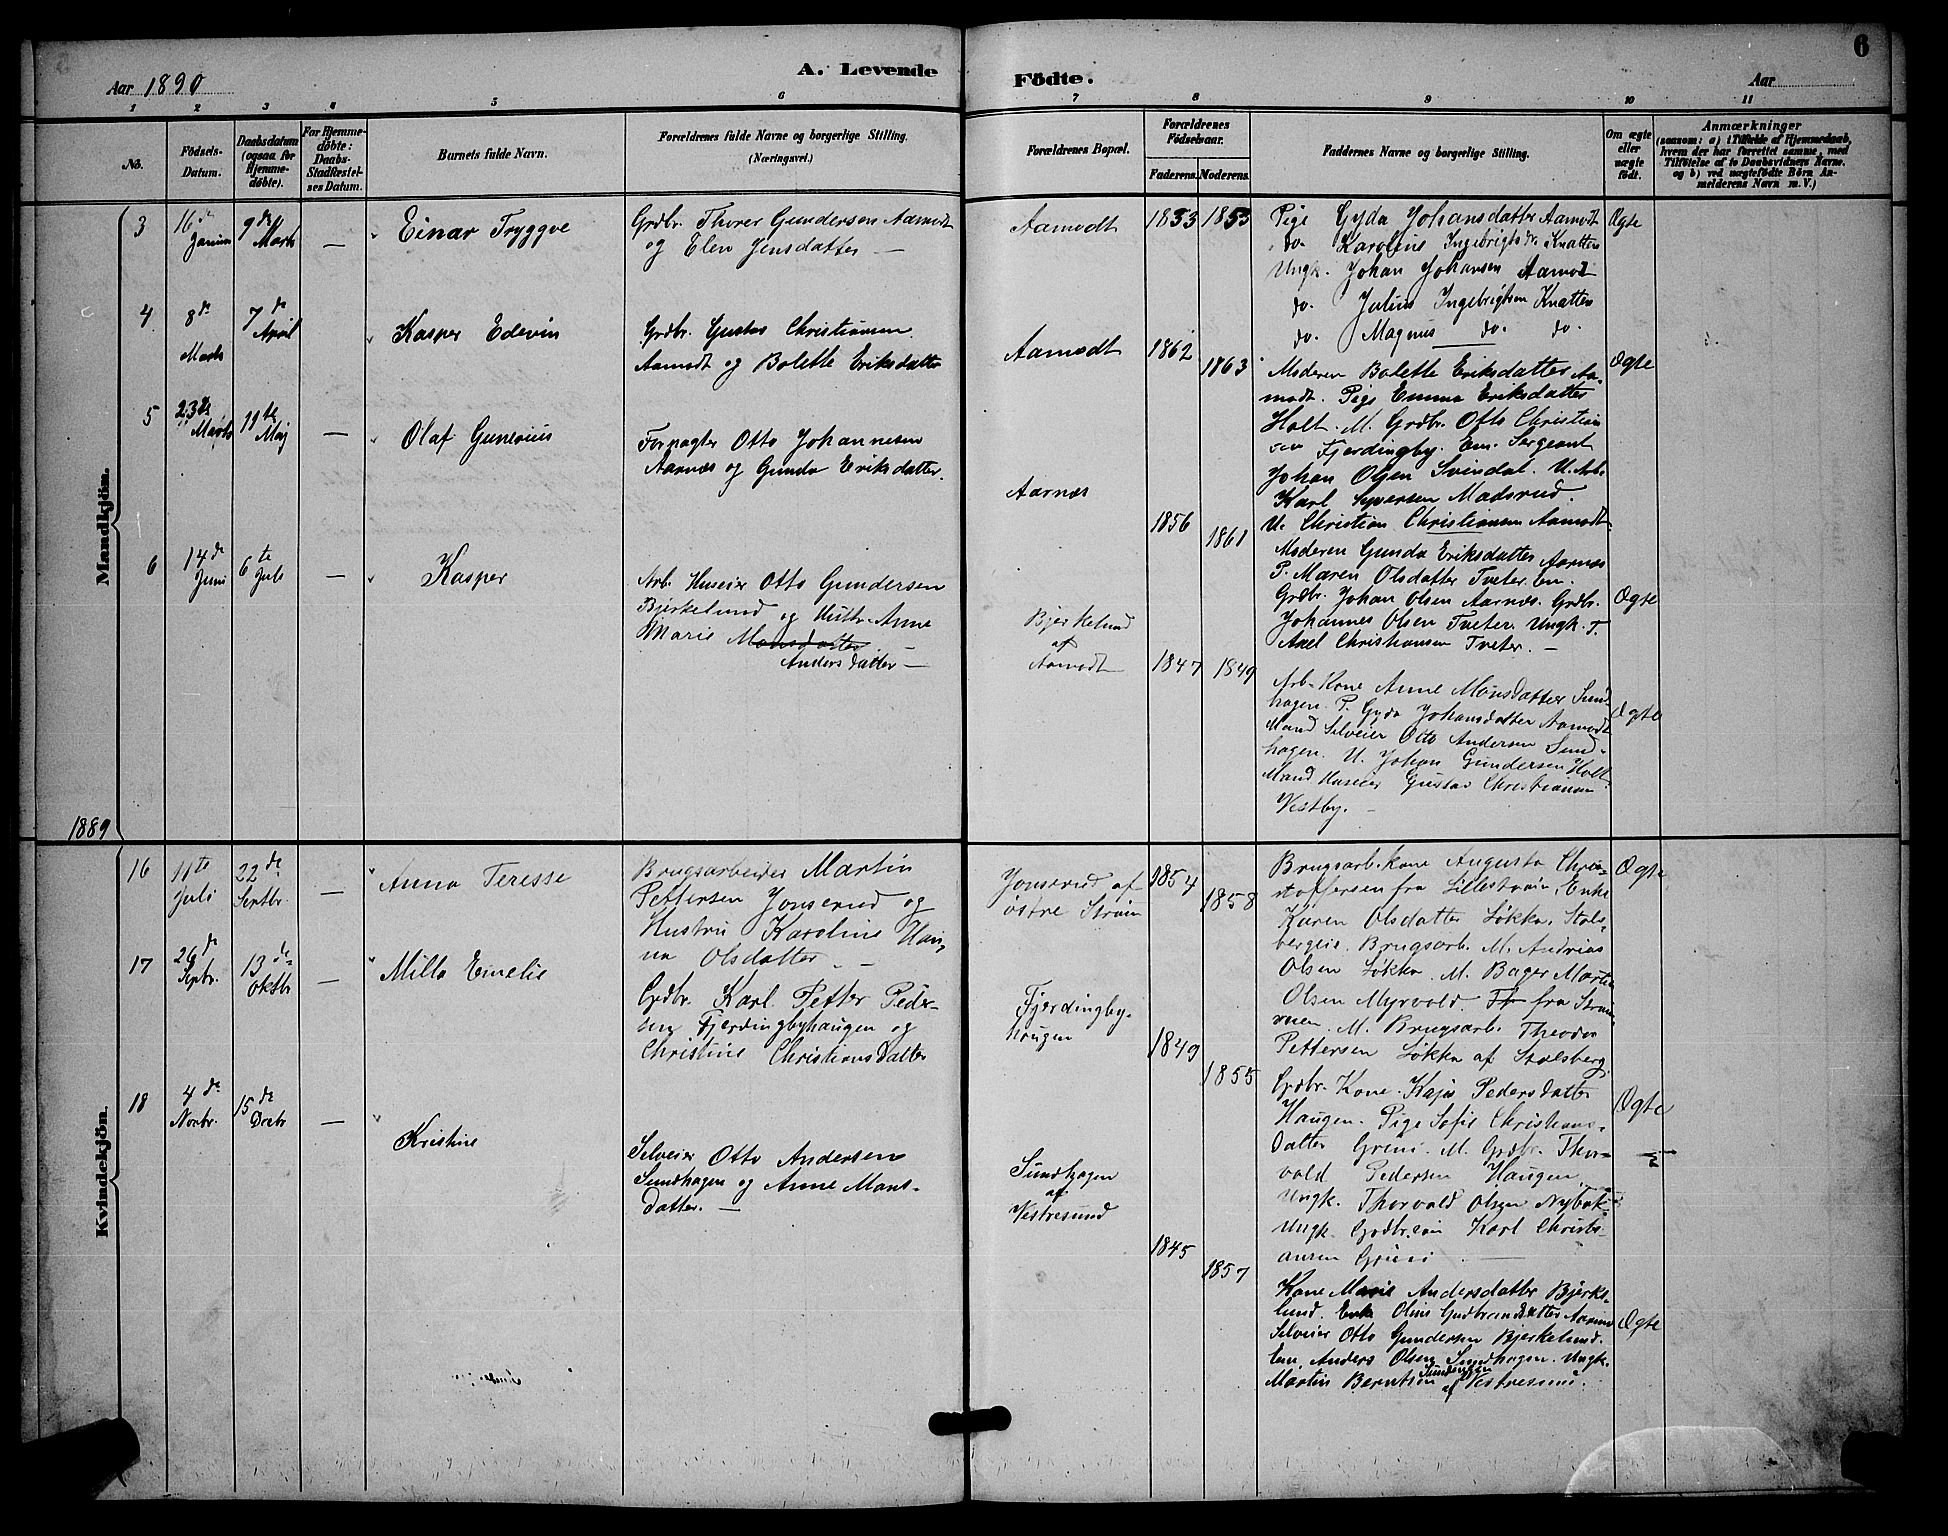 Aar 1890
A. Levende
Födte.
Aar
6
1
2
3
4
5
6
7
8
9
10
11
No.
Födsels-
Datum.
Daabsdatum
(ogsaa for
Hjemme-
döbte).
For Hjemme-
döbte:
Daabs-
Stadfæstel-
ses Datum.
Barnets fulde Navn.
Forældrenes fulde Navne og borgerlige Stilling.
(Næringsvei.)
Forældrenes Bopæl.
Forældrenes
Födselsaar.
Faderens.
Moderens.
Faddernes Navne og borgerlige Stilling.
Om ægte
eller
uægte
født.
Anmærkninger
(saasom: a) i Tilfælde af Hjemmedaab,
hvem der har forrettet samme, med
Tilföielse af to Daabsvidners Navne,
og b) ved uægtefödte Börn An-
melderens Navn m. V.)
Mandkjön.
3
16de
Januar
9de
Marts
—
Einar Tryggve
Grdbr. Thorer Gundersen Aamodt
og Elen Jensdatter —
Aamodt
1853
1853
Pige Gyda Johansdatter Aamodt
do. Karoline Ingebrigtsdr Knatten
Ungk. Johan Johansen Aamodt
do. Julius Ingebrigtsen Knatten
do. Magnus do. do.
Ægte
4
8de
Marts
7de
April
Kasper Edevin
Grdbr. Gustav Christiansen
Aamodt og Bolette Eriksdatter
Aamodt
1862
1863
Moderen Bolette Eriksdatter Aa-
modt. Pige Emma Eriksdatter
Holt. M. Grdbr. Otto Christian
sen Fjerdingby. Em. Sergeant
Johan Olsen Svindal. U. Arb.
Karl Syversen Madsrud.
U. Christian Christiansen Aamodt
Ægte
5
23de
Marts
11te
Maj
—
Olaf Gunerius
Forpagter Otto Johannesen
Aarnæs og Gunda Eriksdatter.
Aarnæs
1856
1861
Moderen Gunda Eriksdatter Aarnæs
P. Maren Olsdatter Tveter. Em.
Grdbr. Johan Olsen Aarnæs. Grdbr.
Johannes Olsen Tveter. Ungk. T.
Axel Christiansen Tveter. —
Ægte
6
14de
Juni
6te
Juli
—
Kasper
Arb. Huseier Otto Gundersen
Bjerkelund og Hustr. Anne
Marie Monsdatter —
Andersdatter —
Bjerkelund
af
Aamodt
1847
1849
Arb. Kone Anne Monsdatter Sund
hagen. P. Gyda Johansdatter Aamodt
Mand Selveier Otto Andersen Sund-
hagen. U. Johan Gundersen Holt
Mand Huseier Gustav Christiansen
Vestby. —
Ægte
1889
Kvindekjön.
16
11te
Juli
22de
Septbr.
—
Anna Teresse
Brugsarbeider Martin
Pettersen Jonserud og
Hustru Karoline Han-
na Olsdatter —
Jonserud af
østre Strøm
1854
1858
Brugsarb. kone Augusta Chri-
stoffersen fra Lillestrøm, Enke
Karen Olsdatter Løkka, Stals-
bergeie. Brugsarb. M. Andreas
Olsen Løkka. M. Bager Martin
Olsen Myrvold. fra Strøm-
men. M. Brugsarb. Theodor
Pettersen Løkka af Stalsberg
Ægte
17
26de
Septbr.
13de
Oktbr
—
Milla Emelie
Grdbr. Karl Petter Peder-
sen Fjerdingbyhaugen og
Christine Christiansdatter
Fjerdingby-
haugen
1849
1855
Grdbr. Kone Kaja Pedersdatter
Haugen. Pige Sofie Christians-
datter Grini. M. Grdbr. Thor-
vald Pedersen Haugen
Ungk. Thorvald Olsen Nybak
Ungk. Grdbr.søn Karl Christi-
ansen Grini
Ægte
18
4de
Novbr.
15de
Decbr
—
Kristine
Selveier Otto Andersen
Sundhagen og Anne Mons-
datter. —
Sundhagen
af
Vestresund
1845
1857
Kone Marie Andersdatter Bjerke-
lund. Enke Oline Gudbrandsdatter Aarnes
Selveier Otto Gundersen Bjerkelund.
Em. Anders Olsen Sundhagen. Ungk.
Martin Berntsen Sundengen
af Vestresund.
Ægte